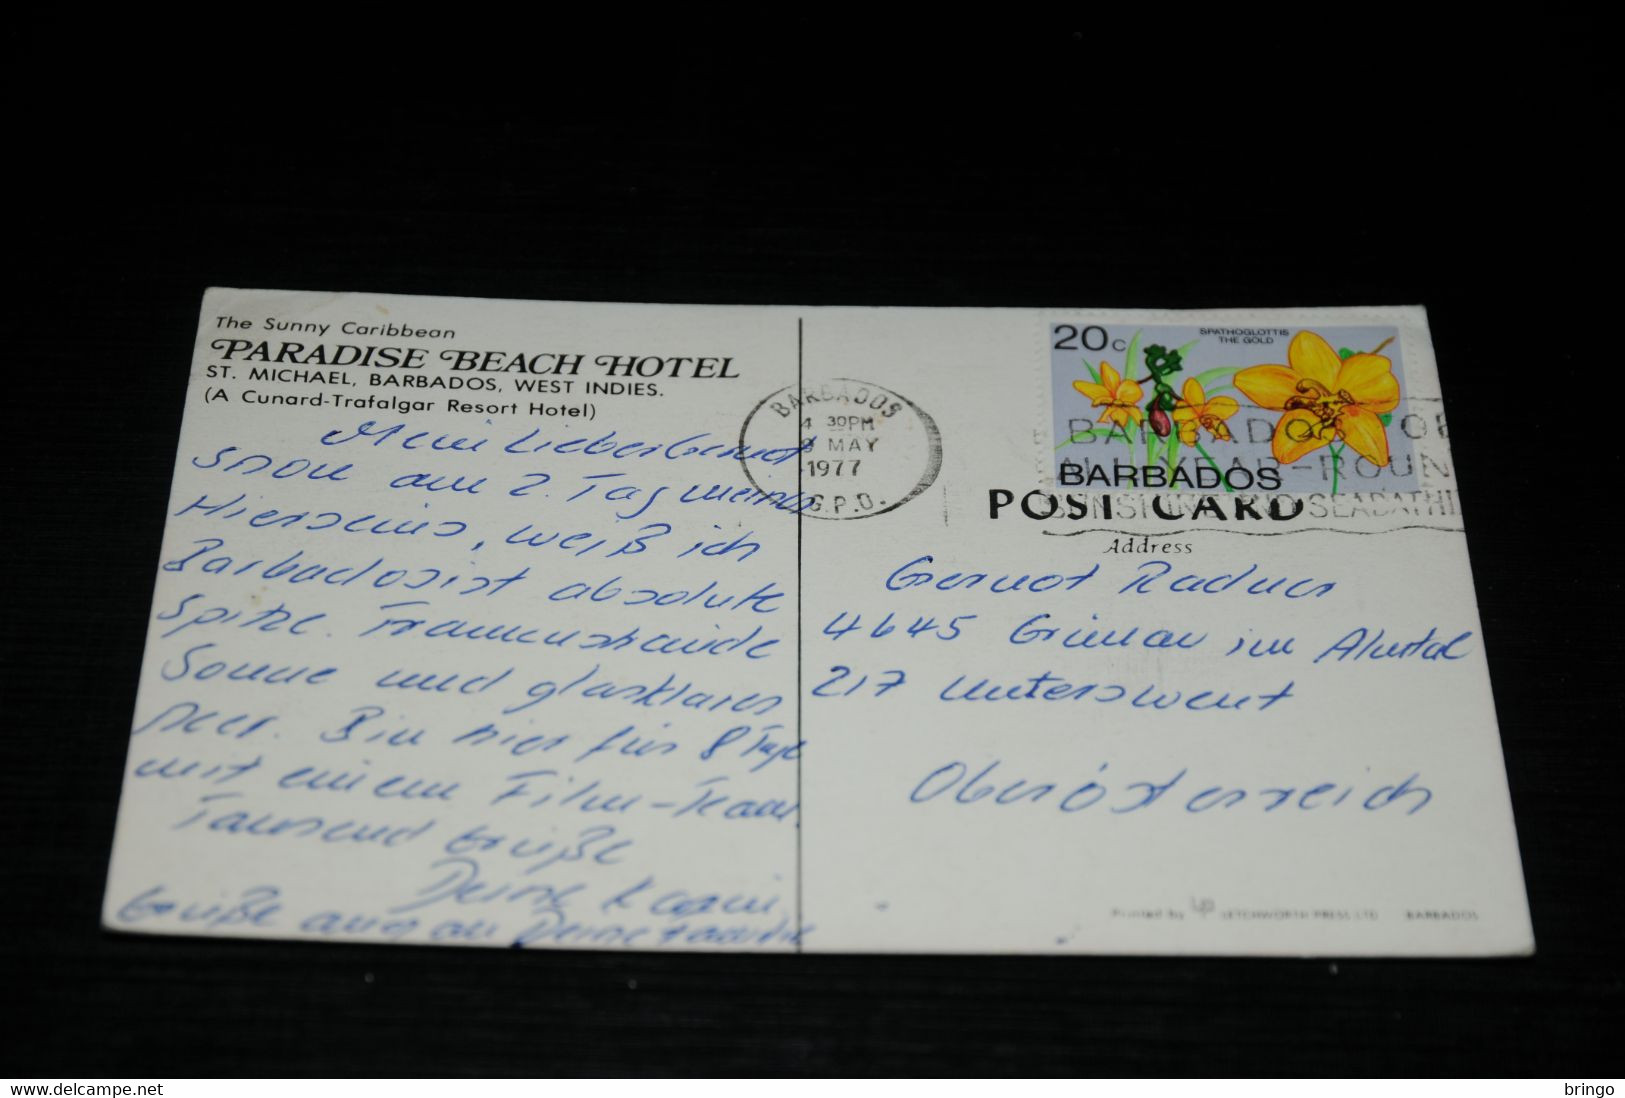 The Sunny Caribbean
PARADISE BEACH HOTEL
ST. MICHAEL, BARBADOS, WEST INDIES.
(A Cunard-Trafalgar Resort Hotel)
Mein Lieber Gernot
schon am 2. Tag meines
Hierseins, weiß ich
Barbados ist absolute
Spitze. Traumstrände
Sonne und glasklares
Meer. Bin hier für 8 Tage
mit einem Film-Team.
Tausend Grüße
Deine
Grüße auch an Deine Familie
BARBADOS
4 30PM
9 MAY
1977
G.P.O.
20c
SPATHOGLOTTIS
THE GOLD
BARBADOS
BARBADOS
ALL YEAR-ROUN
SUNSHINE AND SEABATHI
POST CARD
Address
Gernot
4645 Grünau im Almtal
217 Unter
Oberösterreich
Printed by LP LETCHWORTH PRESS LTD BARBADOS
delcampe.net
bringo